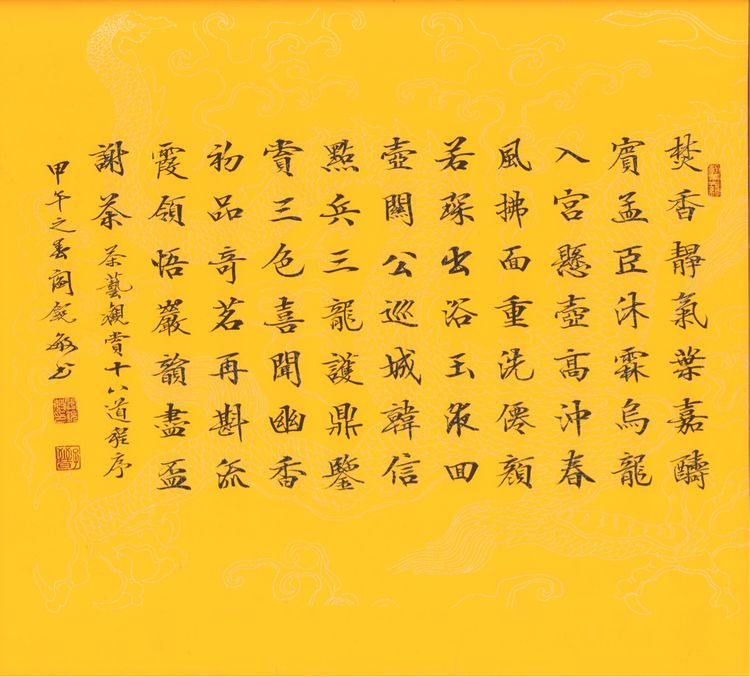 焚香靜氣葉嘉醻
賓孟臣沐霖烏龍
入宮懸壺高沖春
風拂面重洗僊顏
若琛出浴玉液回
壺關公巡城韓信
點兵三龍護鼎鑒
賞三色喜聞幽香
初品奇茗再斟流
霞領悟巖韻盡盃
謝茶
茶藝觀賞十八道程序
甲午之春